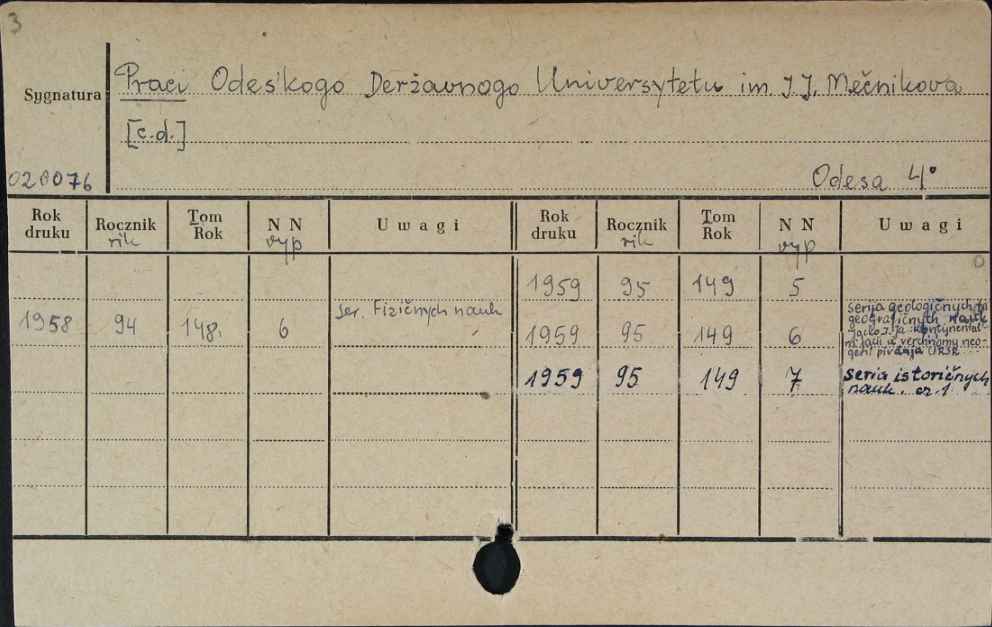 3
Sygnatura
Praci Odes'kogo Deržavnogo Universytetu im. I.I. Mečnikova
[c.d.]
020076
Odesa 4°
Rok druku Rocznik rik Tom Rok N N vyp Uwagi Rok druku Rocznik rik Tom Rok N N vyp Uwagi
1959 95 149 5
1958 94 148. 6 ser. Fizičnych nauk
serija geologičnych ta
geografičnych nauk
1959 95 149 6
kontynental
verchnomu neo-
geni pivdnja URSR
1959 95 149 7 seria istoričnych
nauk. cz. 1